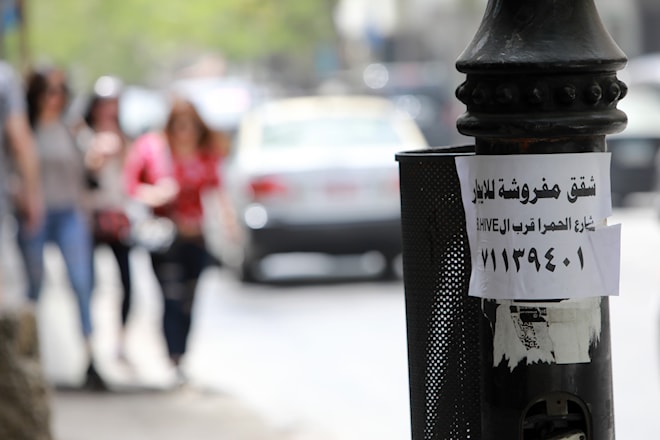 شقق مفروشة للايجار
شارع الحمرا قرب ال HIVE
٧١١٣٩٤٠١